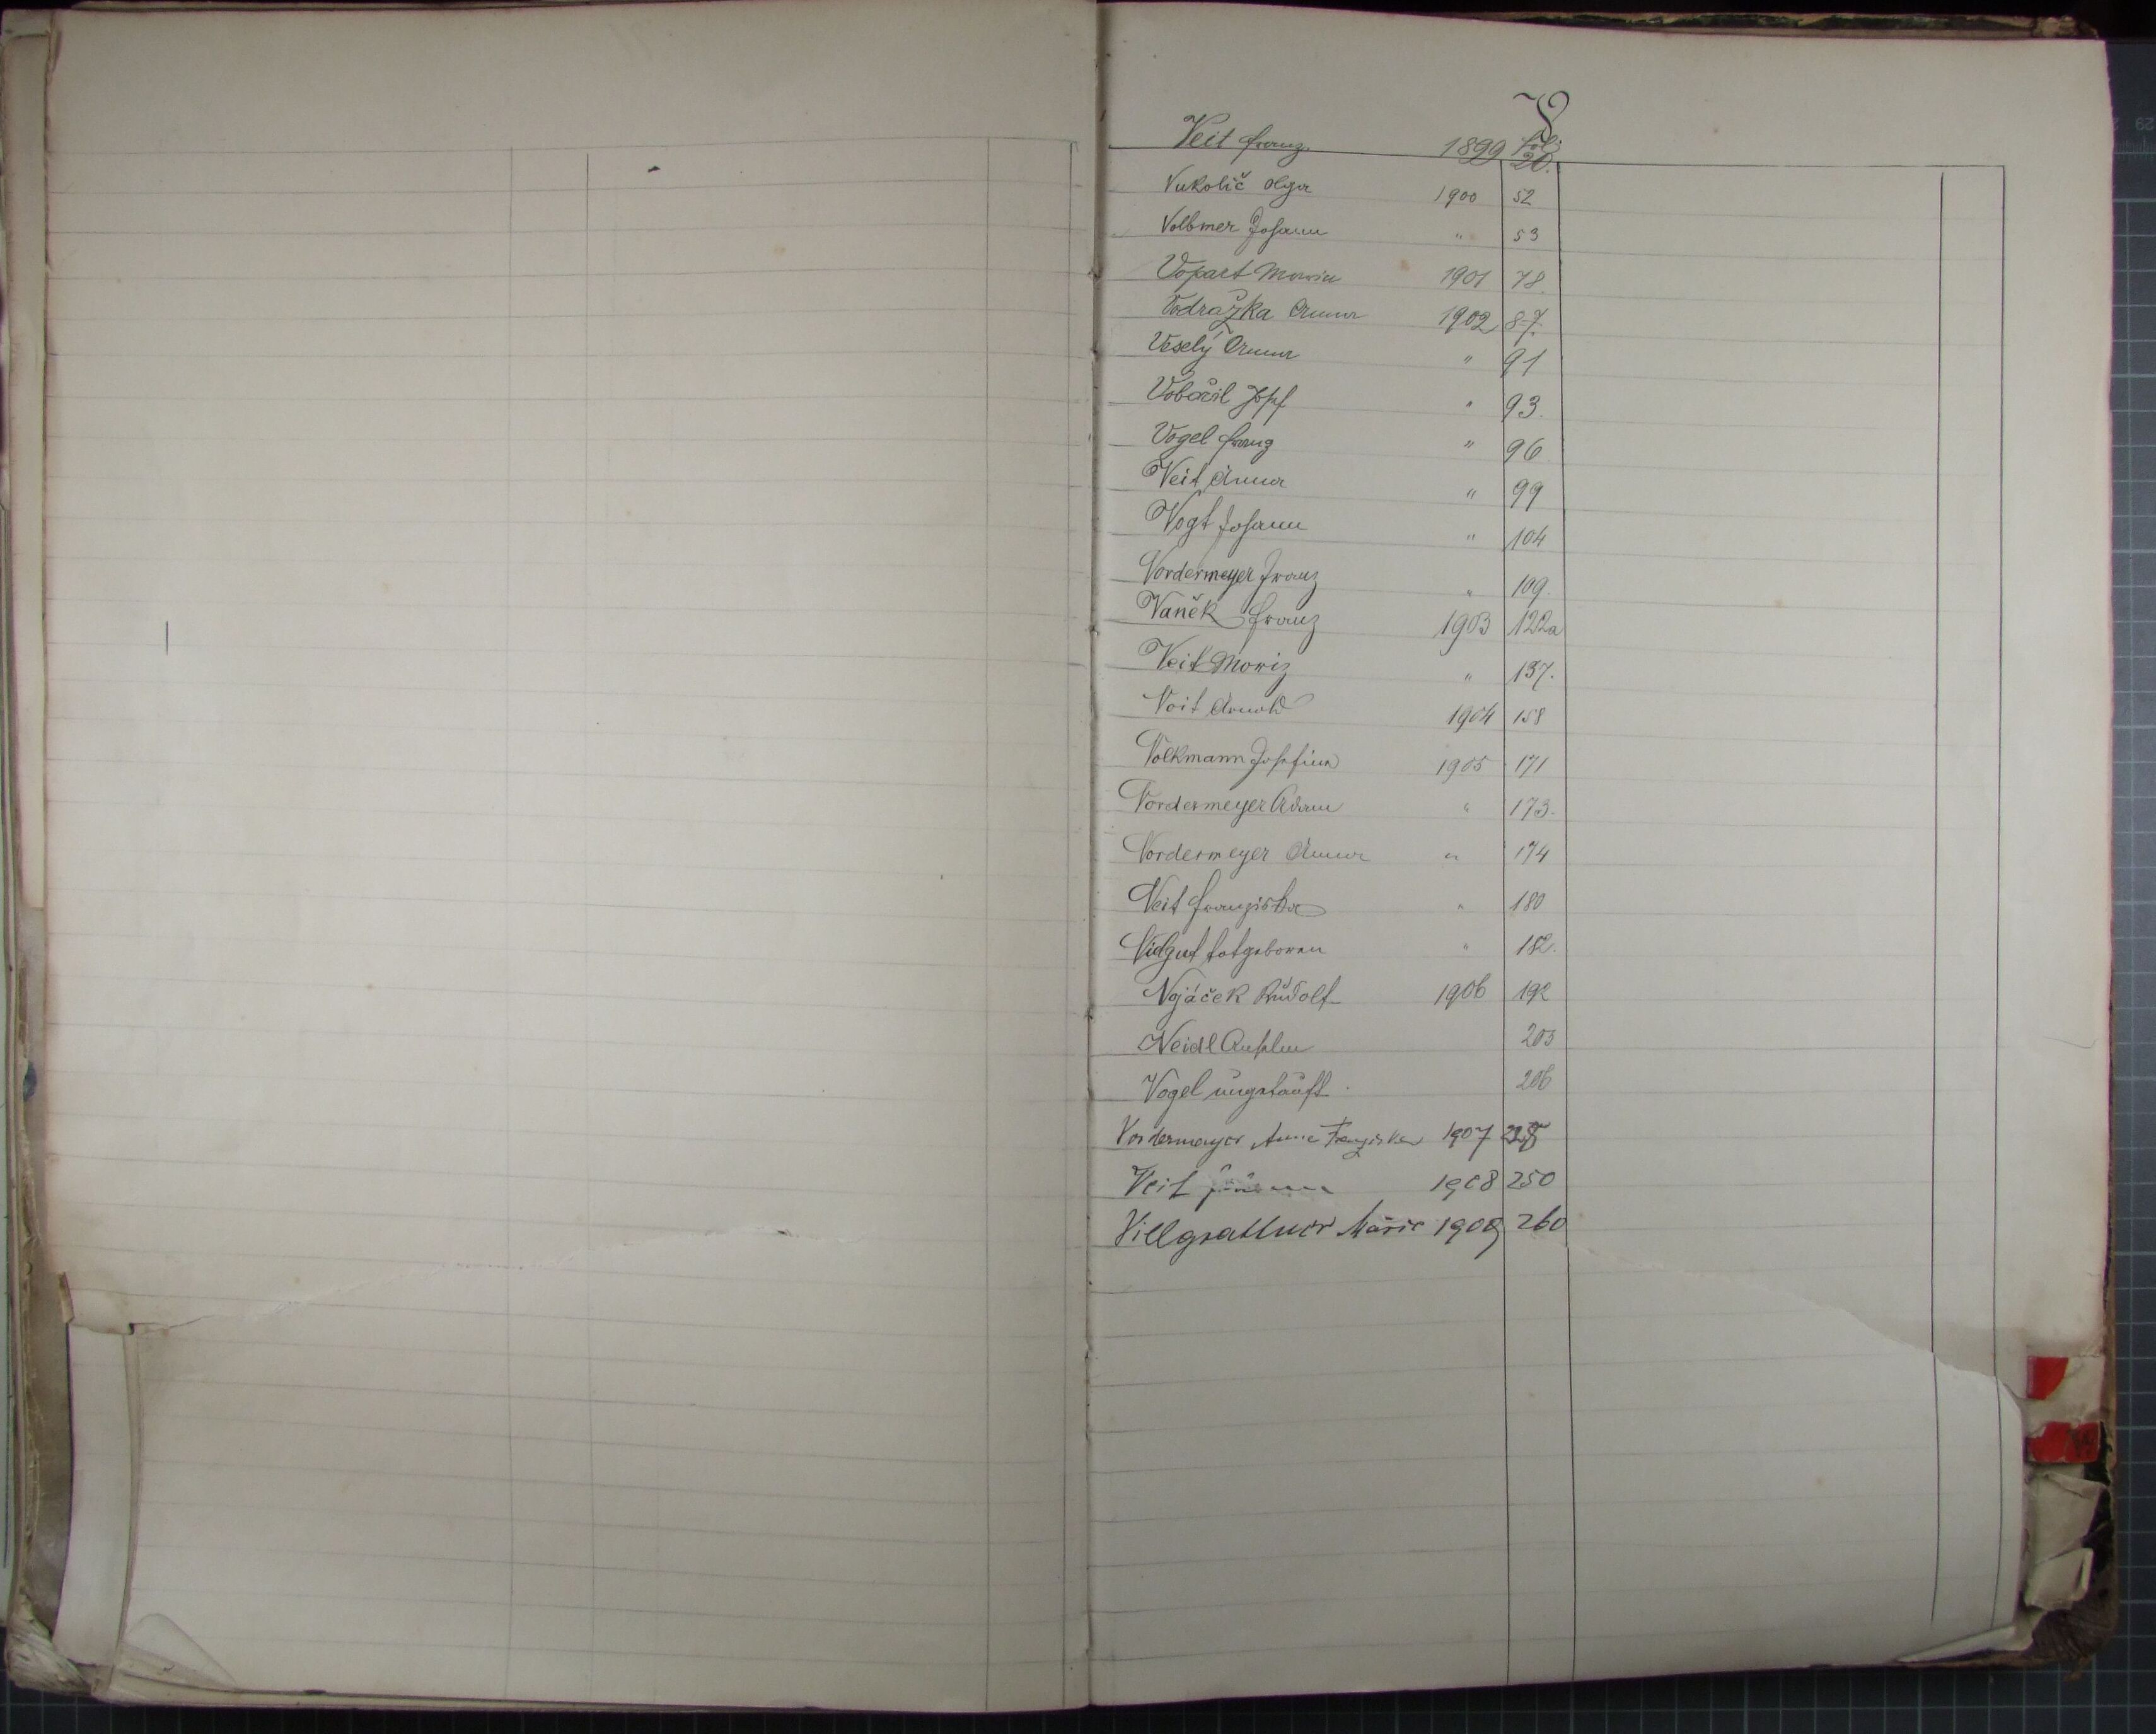 V
Veit Franz 1899 Foli 20.
Vukolič Olga 1900 52
Volbmer Johann " 53
Vopart Maria 1901 78.
Vodražka Anna 1902 87.
Veselý Anna " 91
Vobořil Josef " 93.
Vogel Franz " 96
Veit Anna " 99
Vogt Johann " 104
Vordermeyer Franz " 109.
Vaněk Franz 1903 122a
Veit Moriz " 137.
Voit Arnold 1904 158
Volkmann Josefina 1905 171
Vordermeyer Adam " 173.
Vordermeyer Anna " 174
Veit Franziska " 180
totgeboren " 182.
Vojáček Rudolf 1906 192
Veidl Anselm 203
Vogel ungetauft 206
Vordermayer Anna Franziska 1907
Veit 1908 250
Villgrattner Marie 1909 260